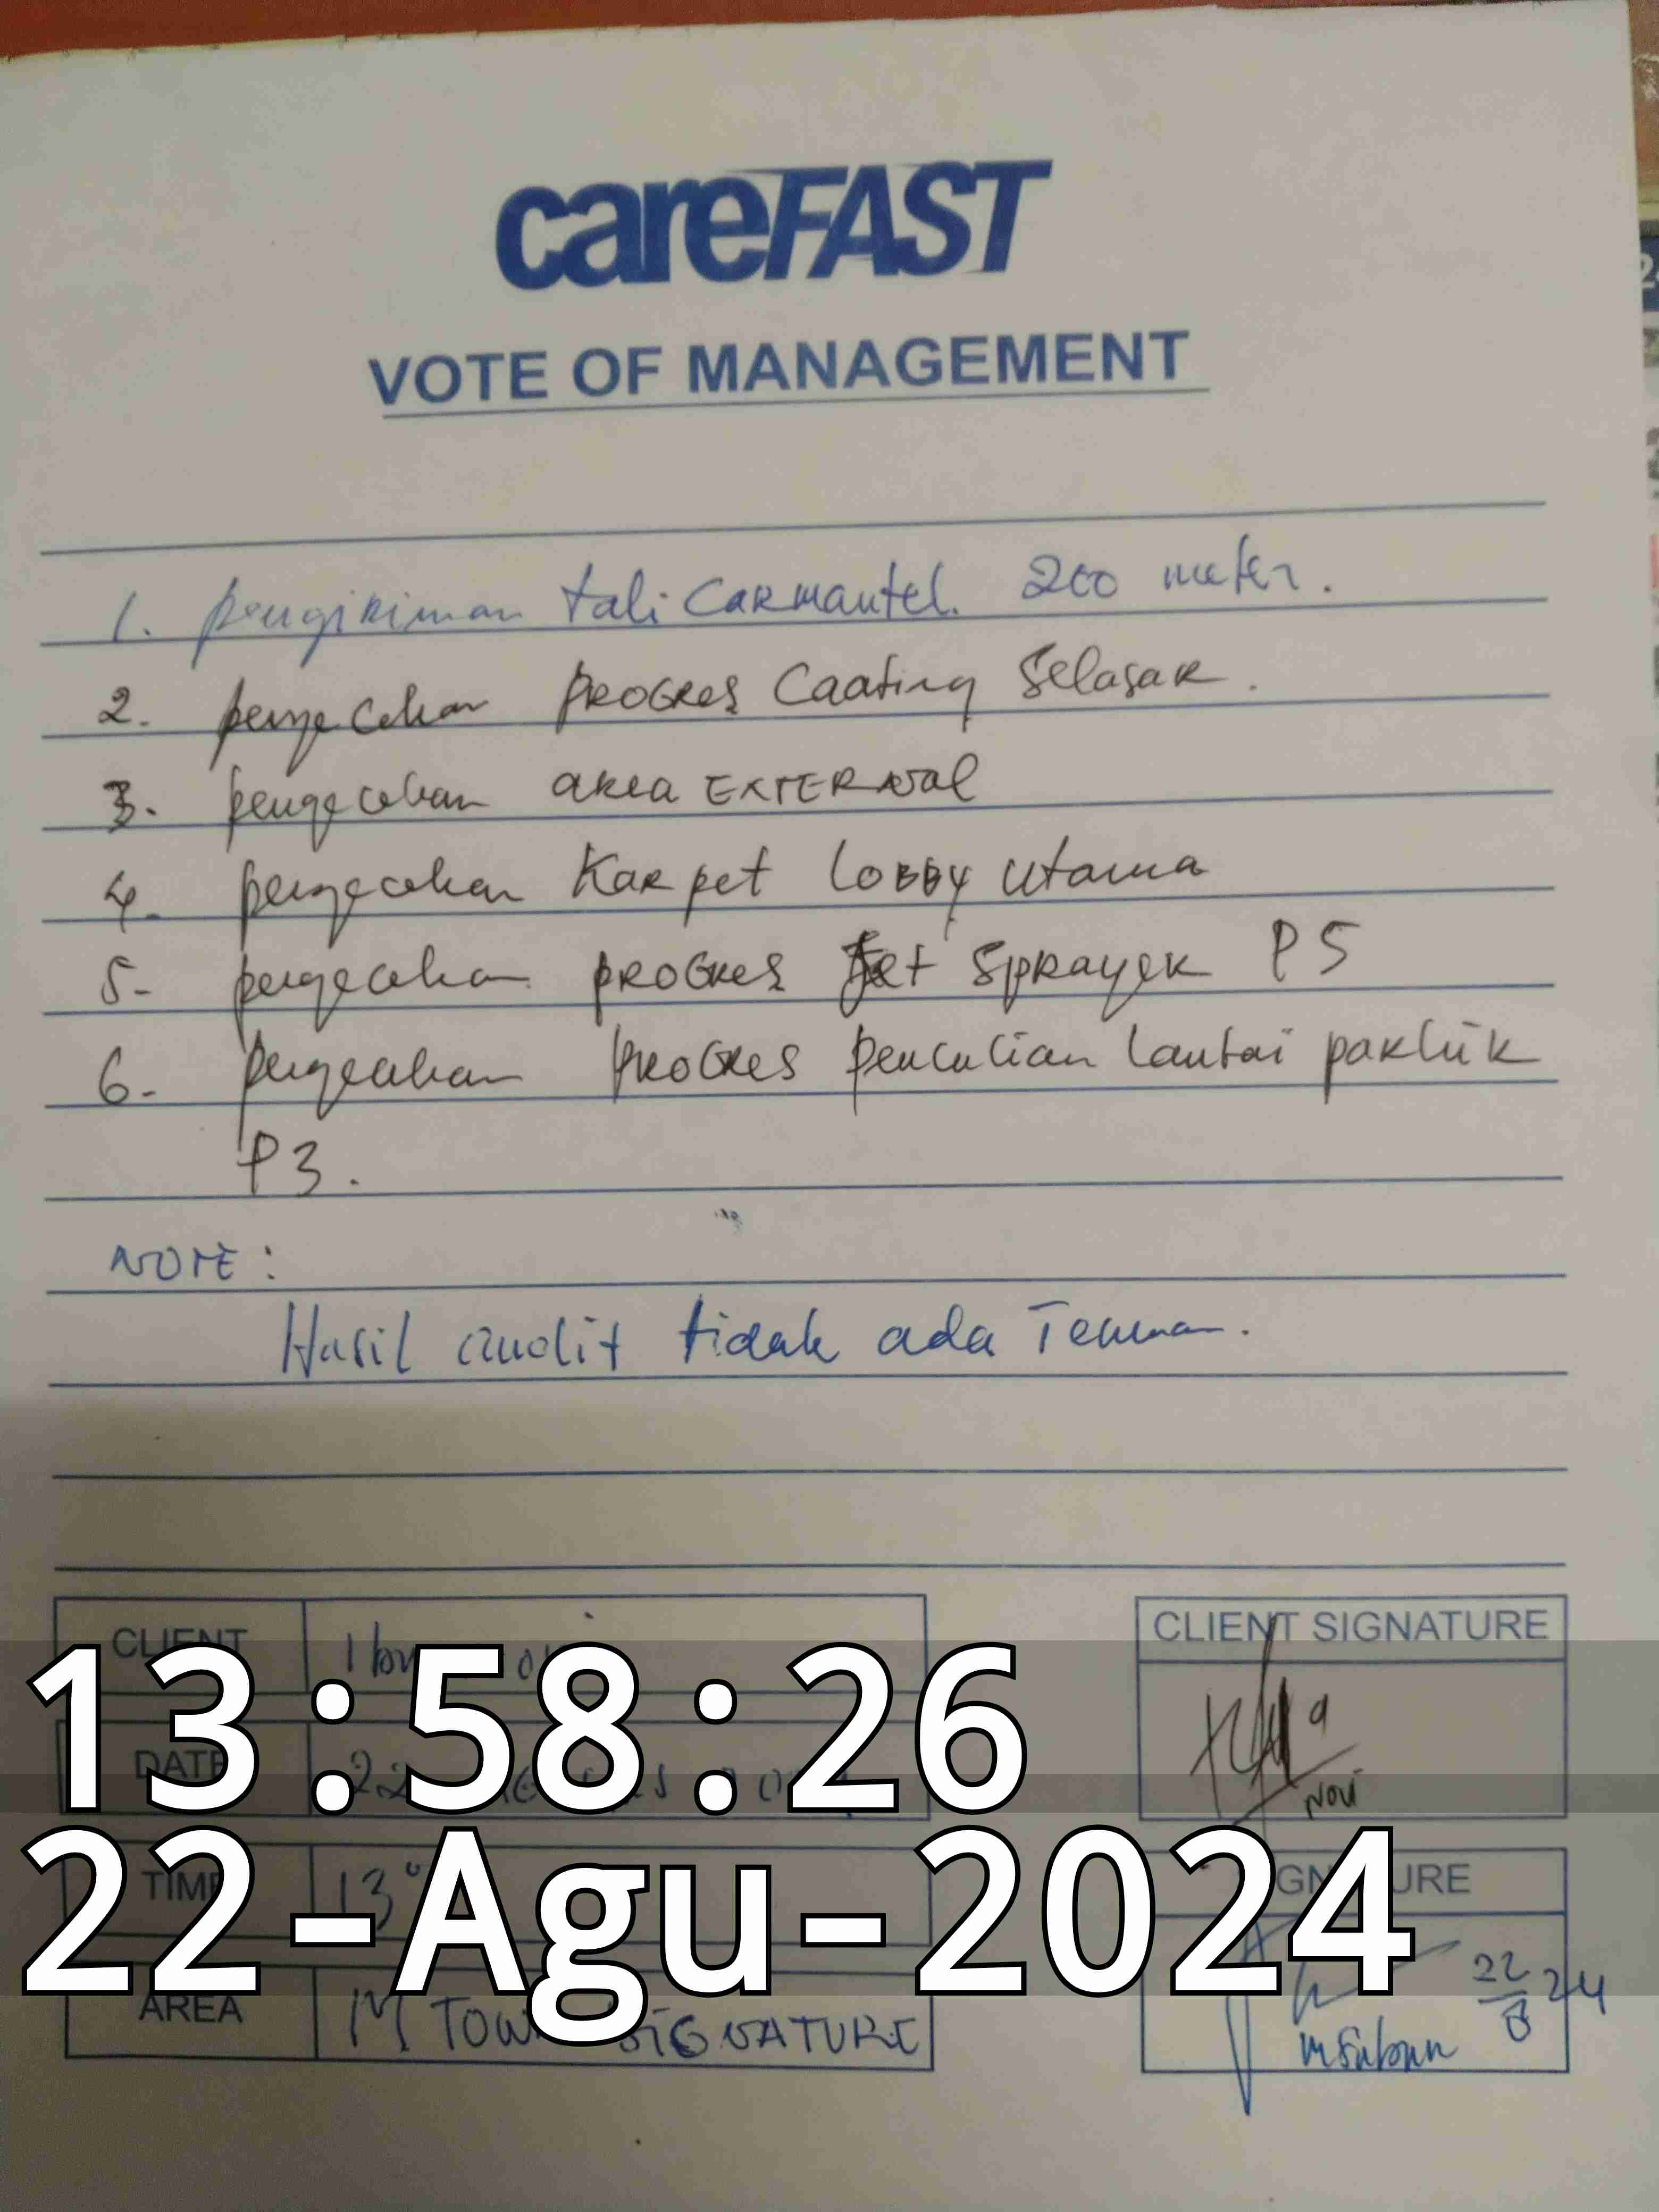 careFAST
VOTE OF MANAGEMENT
1. pengiriman tali Carmantel. 200 meter.
2. pengecekan PROGRES Coating Selasar.
3. pengecekan area EXTERNAL
4. pengecekan Karpet Lobby Utama
5. pengecekan PROGRES Jet Sprayer P5
6. pengecekan PROGRES pencucian lantai parkir
P3.
NOTE:
Hasil audit tidak ada Temuan.
CLIENT
CLIENT SIGNATURE
13:58:26
DATE
Novi
TIME 13
22-Agu-2024
22/8 24
AREA M TOWN SIGNATURE